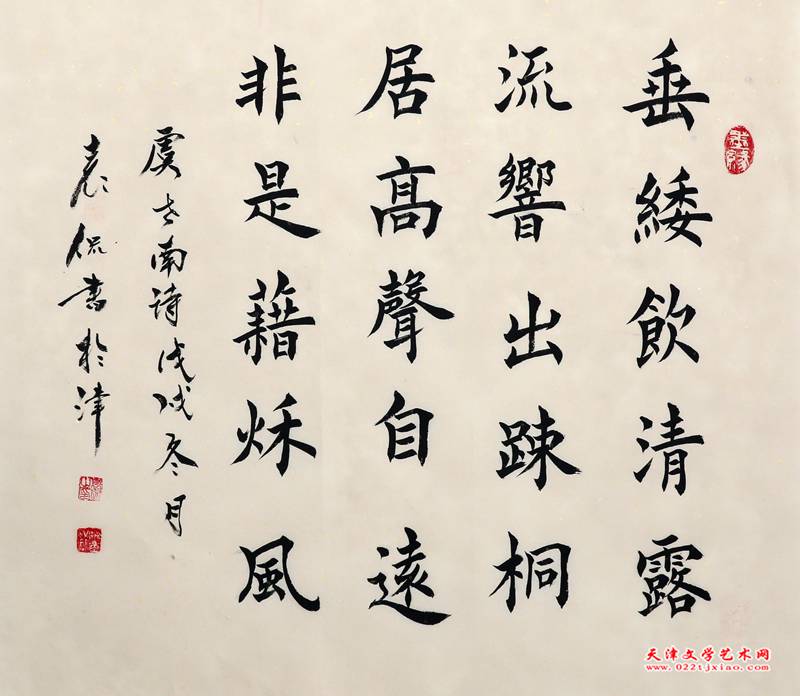 垂緌飲清露
流響出疎桐
居髙聲自遠
非是藉秌風
虞世南诗戊戌冬月
袁侃書於津
天津文学艺术网
www.022tjxiao.com